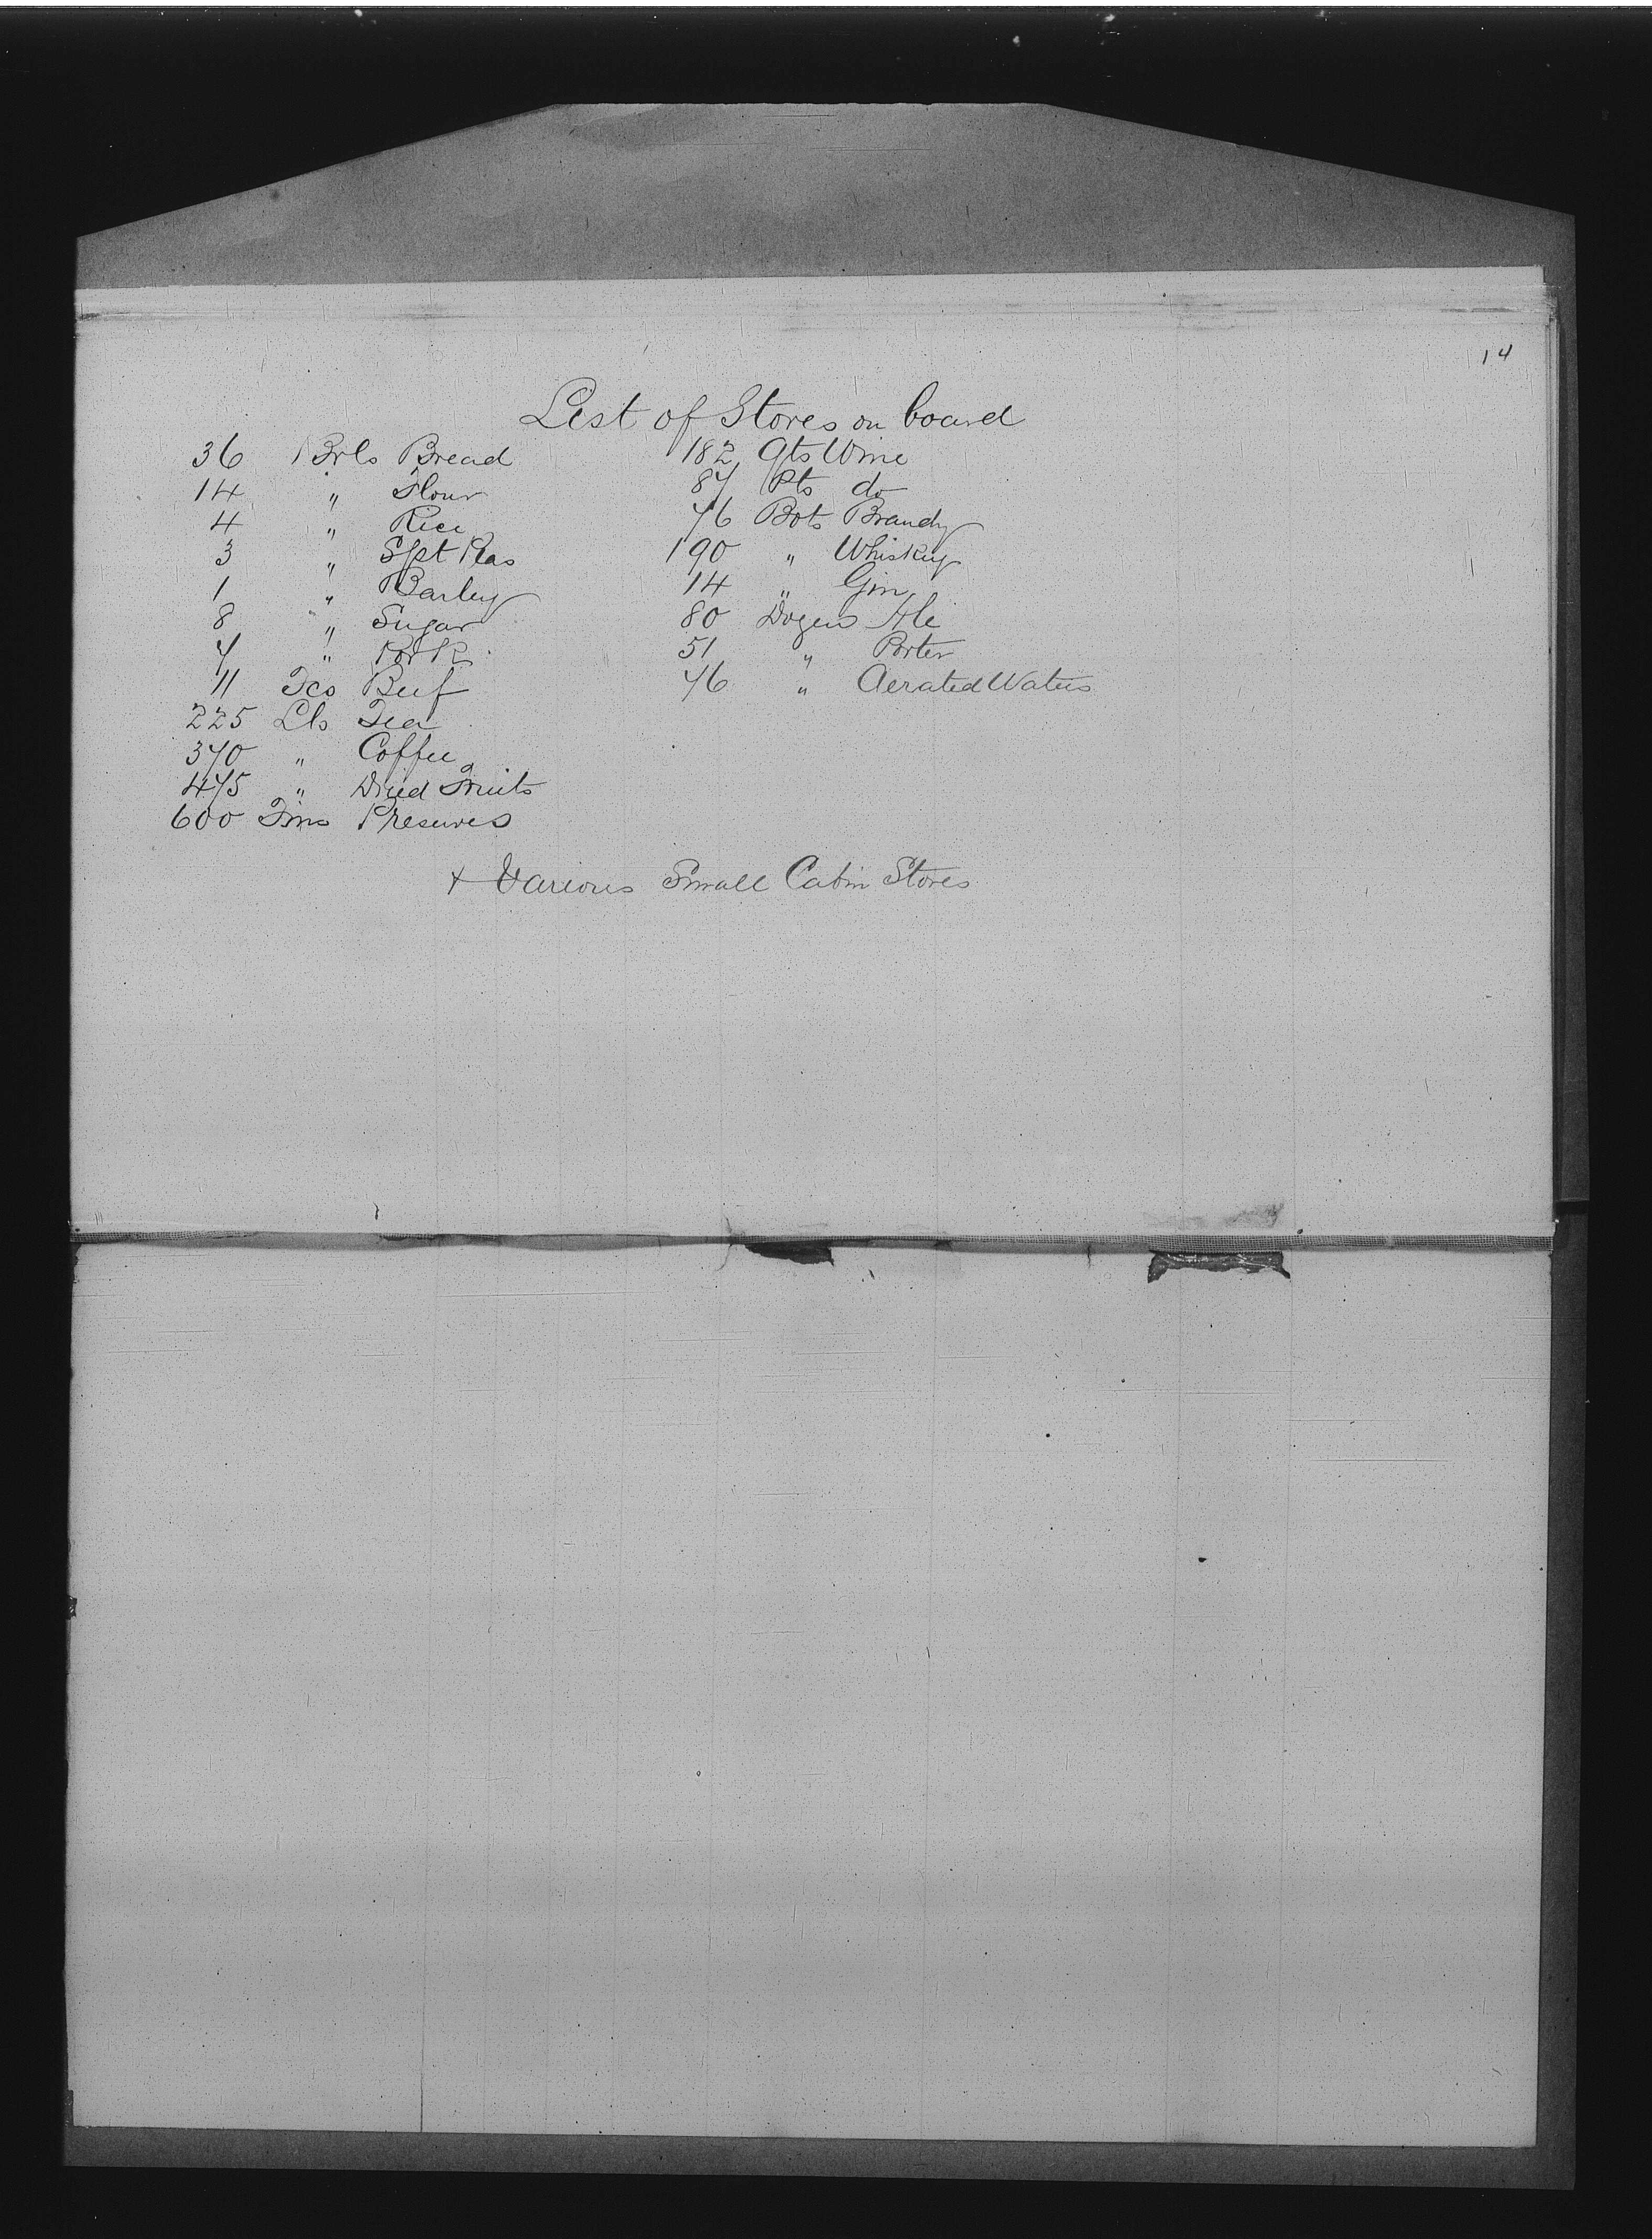 14
List of Stores on board
36 Brls Bread
14 " Flour
4 " Rice
3 " Splt Peas
1 " Barley
8 " Sugar
7 " Pork
11 Tcs Beef
225 Lbs Tea
370 " Coffee
475 " Dried Fruits
600 Tins Preserves
182 Qts Wine
87 Pts do
76 Bots Brandy
190 " Whiskey
14 " Gin
80 Dozens Ale
51 " Porter
76 " Aerated Waters
+ Various Small Cabin Stores